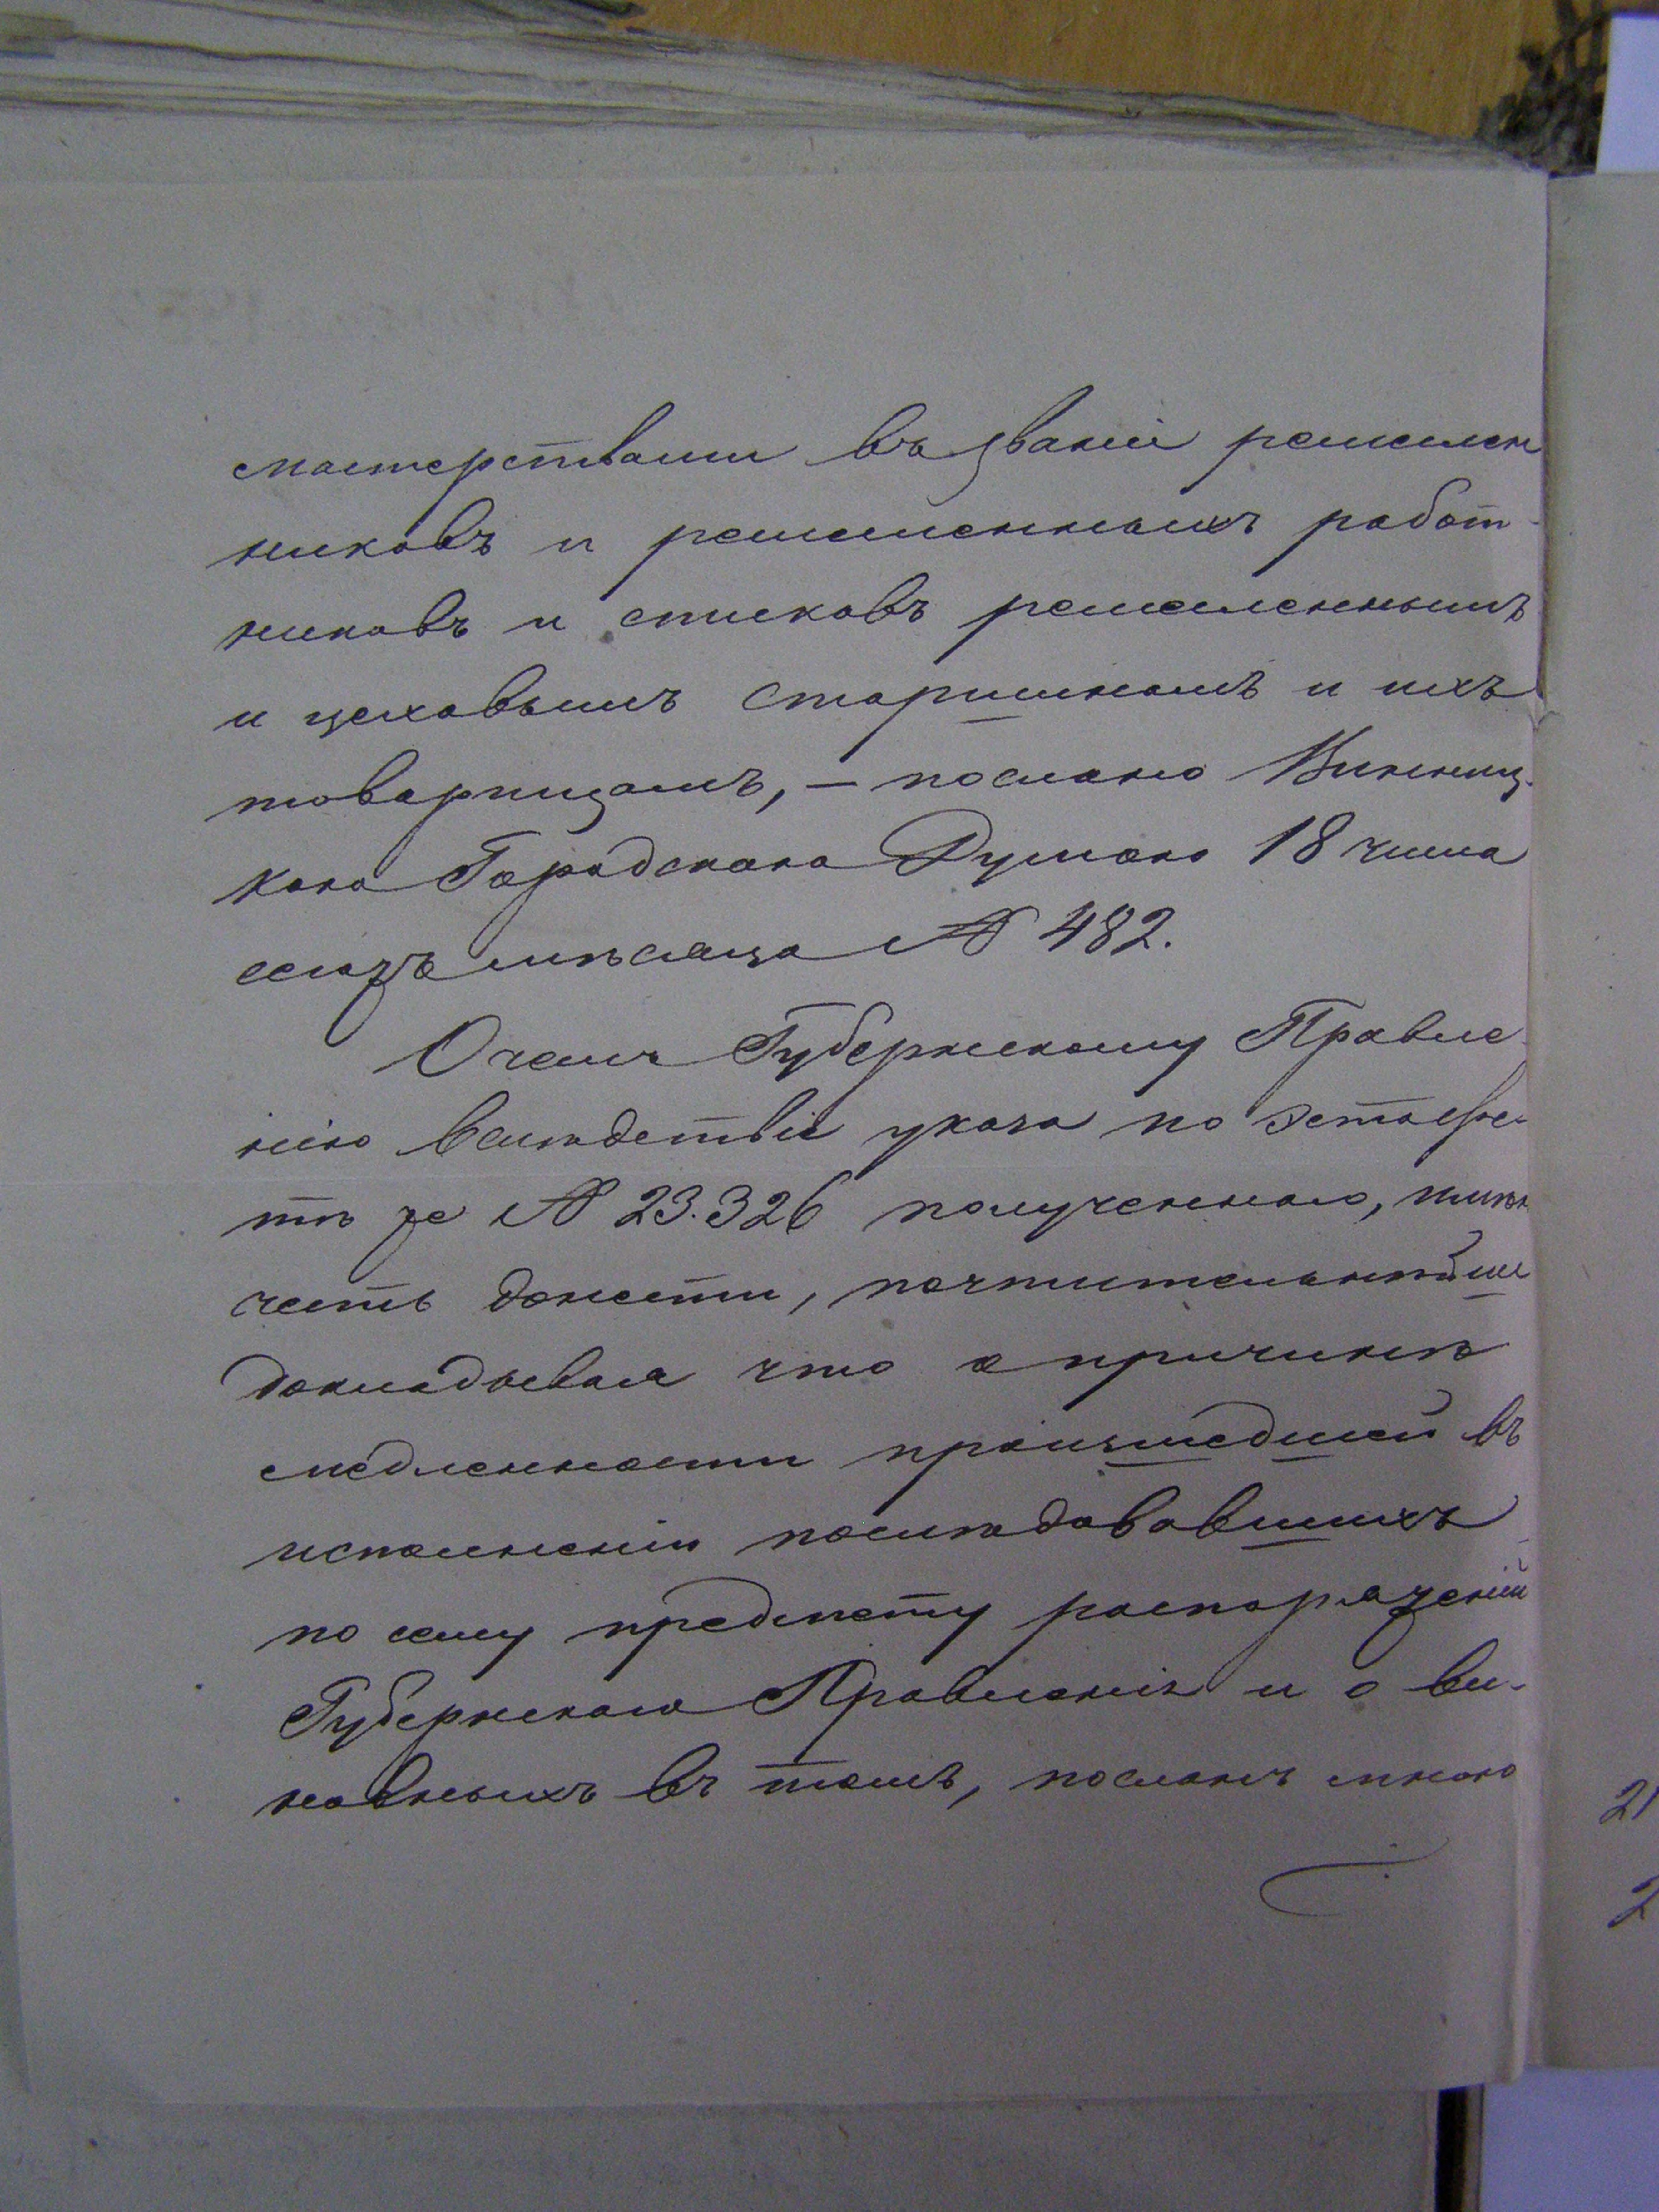 мастерствами въ званіи ремеслен
никовъ и ремесленныхъ работ-
никовъ и списковъ ремесленнымъ
и цеховымъ старшинамъ и ихъ
товарищамъ, — послано Винниц-
кою Городскою Думою 18 числа
сего мѣсяца № 482.
О чемъ Губернскому Правле
нію вслѣдствіе указа по эстафе
тѣ за № 23.326 полученнаго, имѣя
честь донести, почтительнѣйше
докладываю что о причинѣ
медленности происшедшей въ
исполненіи послѣдовавшихъ
по сему предмету распоряженій
Губернскаго Правленія и о ви-
новныхъ въ томъ, посланъ мною
21
2